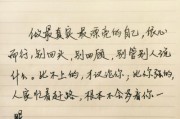 做最真实最漂亮的自己，依心
而行，别回头，别四顾，别管别人说
什么。比不上的，才议论你；比你强的，
人家忙着赶路，根本不会多看你一
眼。